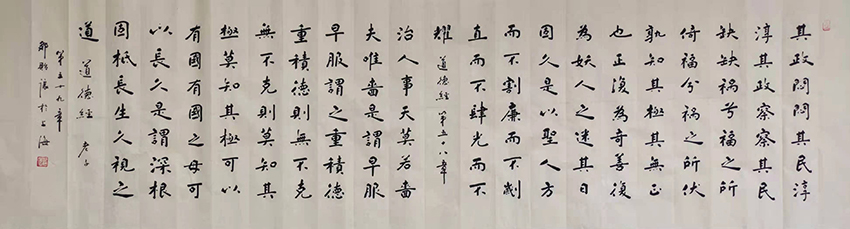 其政悶悶其民淳
淳其政察察其民
缺缺祸兮福之所
倚福兮祸之所伏
孰知其極其無正
也正復為奇善復
為妖人之迷其日
固久是以聖人方
而不割廉而不劌
直而不肆光而不
耀 道德經 第五十八章
治人事天莫若嗇
夫唯嗇是謂早服
早服謂之重積德
重積德則無不克
無不克則莫知其
極莫知其極可以
有國有國之母可
以長久是謂深根
固柢長生久視之
道 道德經 老子
第五十九章
於上海